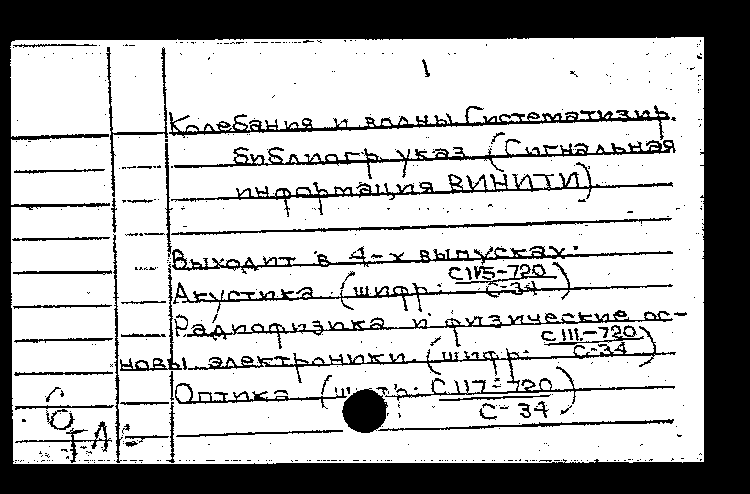 1
Колебания и волны Систематизир.
библиогр. указ (Сигнальная
информация ВИНИТИ)
Выходит в 4-х выпусках.
Акустика. (шифр: С115-720
С-34)
Радиофизика и физические ос-
новы электроники. (шифр: С111-720
С-34)
Оптика (шифр: С117-720
С-34)
6